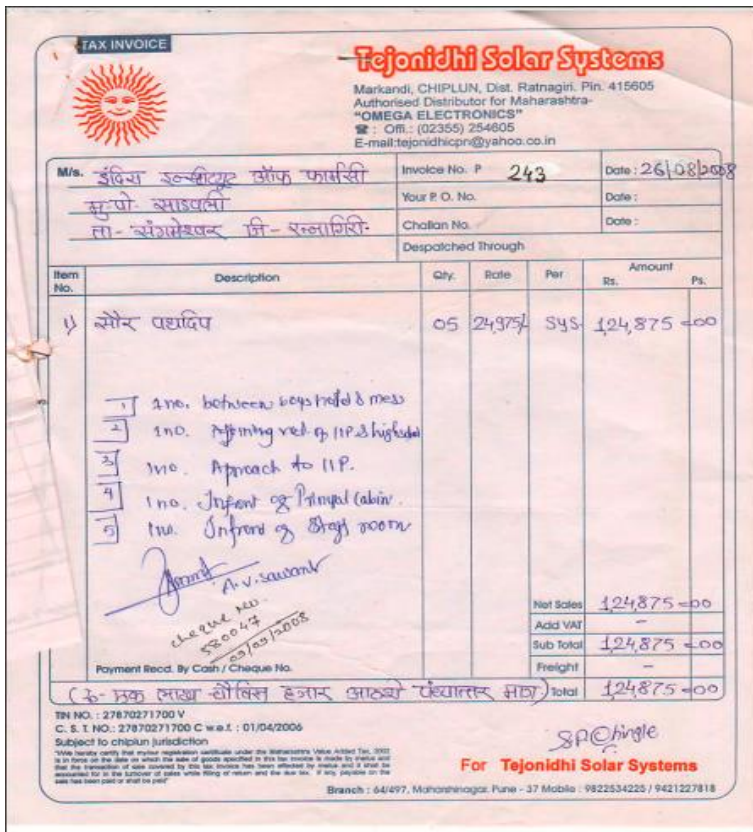 TAX INVOICE
Tejonidhi Solar Systems
Markandi, CHIPLUN, Dist. Ratnagiri. Pin. 415605
Authorised Distributor for Maharashtra-
"OMEGA ELECTRONICS"
☎ : Offi.: (02355) 254605
E-mail:tejonidhicpn@yahoo.co.in
M/s. इंदिरा इन्स्टीट्यूट ऑफ फार्मसी
Invoice No. P 243 Date : 26/08/2008
मु.पो. साडवली
Your P. O. No. Date :
ता- संगमेश्वर जि- रत्नागिरी.
Challan No. Date :
Despatched Through
Item No. Description Qty. Rate Per Amount Rs. Ps.
1) सौर पथदिप 05 24,975/- SYS- 1,24,875=00
1 1no. between boys hostel & mess
2 1no. of IIP & highschool
3 1no. Aproach to IIP.
4 1no. Infront of Principal Cabin.
5 1no. Infront of Staff room
A.V. Sawant
cheque No.
580047
Net Sales 1,24,875=00
Add VAT -
Sub Total 1,24,875=00
Payment Recd. By Cash / Cheque No.
Freight -
(रु- एक लाख चौविस हजार आठशे पंच्यात्तर मात्र) Total 1,24,875=00
TIN NO. : 27870271700 V
C. S. T. NO.: 27870271700 C w.e.f. : 01/04/2006
Subject to chiplun jurisdiction
"I/We hereby certify that my/our registration certificate under the Maharashtra Value Added Tax, 2002
is in force on the date on which the sale of goods specified in this tax invoice is made by me/us and
that the transaction of sale covered by this tax invoice has been effected by me/us and it shall be
accounted for in the turnover of sales while filing of return and the due tax, if any, payable on the
sale has been paid or shall be paid"
For Tejonidhi Solar Systems
Branch : 64/497, Maharshinagar, Pune - 37 Mobile : 9822534225 / 9421227818